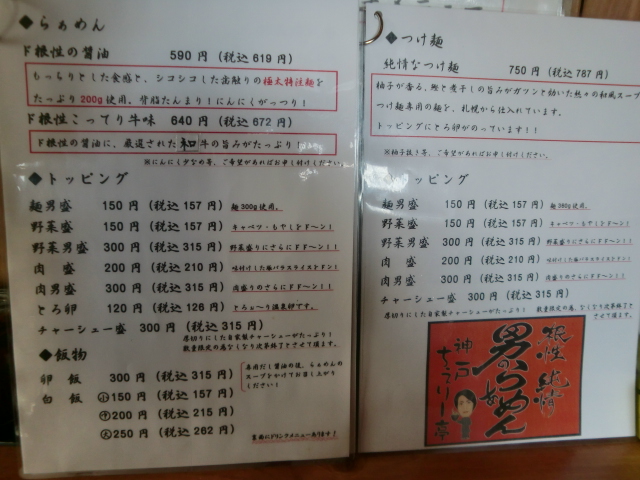 ◆らぁめん
ド根性の醤油 590円(税込619円)
もっちりとした食感と、シコシコした歯触りの極太特注麺を
たっぷり200g使用。背脂たんまり!にんにくがっつり!
ド根性こってり牛味 640円(税込672円)
ド根性の醤油に、厳選された和牛の旨みがたっぷり!
※にんにく少なめ等、ご希望があればお申し付けください。
◆トッピング
麺男盛 150円(税込157円) 麺300g使用。
野菜盛 150円(税込157円) キャベツ・もやしをドド〜ン!
野菜男盛 300円(税込315円) 野菜盛りにさらにドド〜ン!!
肉盛 200円(税込210円) 味付けした豚バラスライスドドン!
肉男盛 300円(税込315円) 肉盛りのさらにドド〜ン!!
とろ卵 120円(税込126円) とろぉ〜り温泉卵です。
チャーシュー盛 300円(税込315円)
厚切りにした自家製チャーシューがたっぷり!
数量限定の為なくなり次第終了とさせて頂ます。
◆飯物
卵飯 300円(税込315円)
専用だし醤油の後、らぁめんの
スープをかけてお召し上がり
ください!
白飯 小150円(税込157円)
中200円(税込215円)
大250円(税込262円)
裏面にドリンクメニューあります!
◆つけ麺
純情なつけ麺 750円(税込787円)
柚子が香る、鰹と煮干しの旨みがガツンと効いた熱々の和風スープ
つけ麺専用の麺を、札幌から仕入れています。
トッピングにとろ卵がのっています!!
※柚子抜き等、ご希望があればお申し付けください。
トッピング
麺男盛 150円(税込157円)
野菜盛 150円(税込157円) キャベツ・もやしをドド〜ン!
野菜男盛 300円(税込315円) 野菜盛りにさらにドド〜ン!!
肉盛 200円(税込210円) 味付けした豚バラスライスドドン!
肉男盛 300円(税込315円) 肉盛りのさらにドド〜ン!!
チャーシュー盛 300円(税込315円)
厚切りにした自家製チャーシューがたっぷり! 数量限定の為、なくなり次第終了と
させて頂ます。
根性 純情
男のらぁめん
神戸
ちぇりー亭